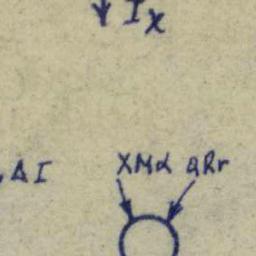 Ix
ΔI
XMα qRr